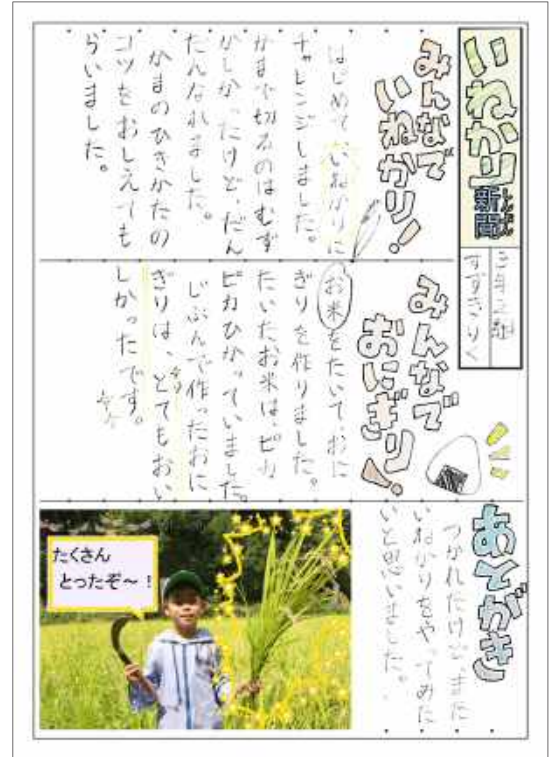 いねかり新聞
しんぶん
三年二組
すずき りく
みんなで
いねかり！
はじめて、いねかりに
チャレンジしました。
かまで切るのはむず
かしかったけど、だん
だんなれました。
かまのひきかたの
コツをおしえても
らいました。
みんなで
おにぎり！
お米をたいて、おに
ぎりを作りました。
たいたお米は、ピカ
ピカひかっていました。
じぶんで作ったおに
ぎりは、とてもおい
しかったです。
あとがき
つかれたけど、また
いねかりをやってみた
いと思いました。
たくさん
とったぞ～！